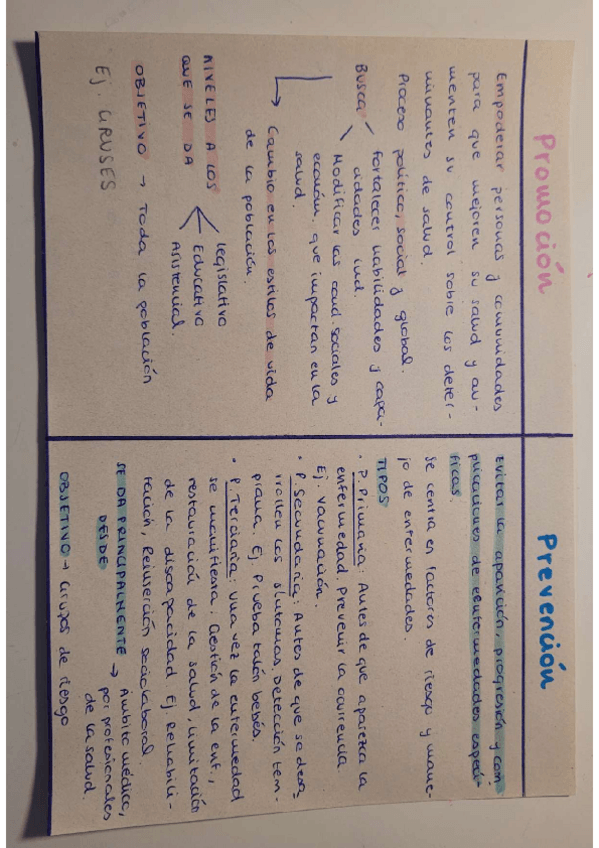 Promoción
Empoderar personas y comunidades
para que mejoren su salud y au-
menten su control sobre los deter-
minantes de salud.
Proceso político, social y global.
Busca
fortalecer habilidades y capa-
cidades ind.
Modificar las cond. sociales y
económ. que impactan en la
salud.
→ Cambio en los estilos de vida
de la población.
NIVELES A LOS
QUE SE DA
legislativo
Educativo
Asistencial.
OBJETIVO → Toda la población
Ej. CRUSES
Prevención
Evitar la aparición, progresión y com
plicaciones de enfermedades especí-
ficas.
Se centra en factores de riesgo y mane-
jo de enfermedades.
TIPOS
• P. Primaria: Antes de que aparezca la
enfermedad. Prevenir la ocurrencia.
Ej. Vacunación.
• P. Secundaria: Antes de que se desa
rrollen los síntomas, Detección tem-
prana. Ej. Prueba talón bebés.
• P. Terciaria: una vez la enfermedad
se manifiesta. Gestión de la enf.,
restauración de la salud, limitación
de la discapacidad. Ej. Rehabili-
tación, Reinserción sociolaboral.
SE DA PRINCIPALMENTE → Ámbito médico,
DESDE por profesionales
de la salud.
OBJETIVO → Grupos de riesgo